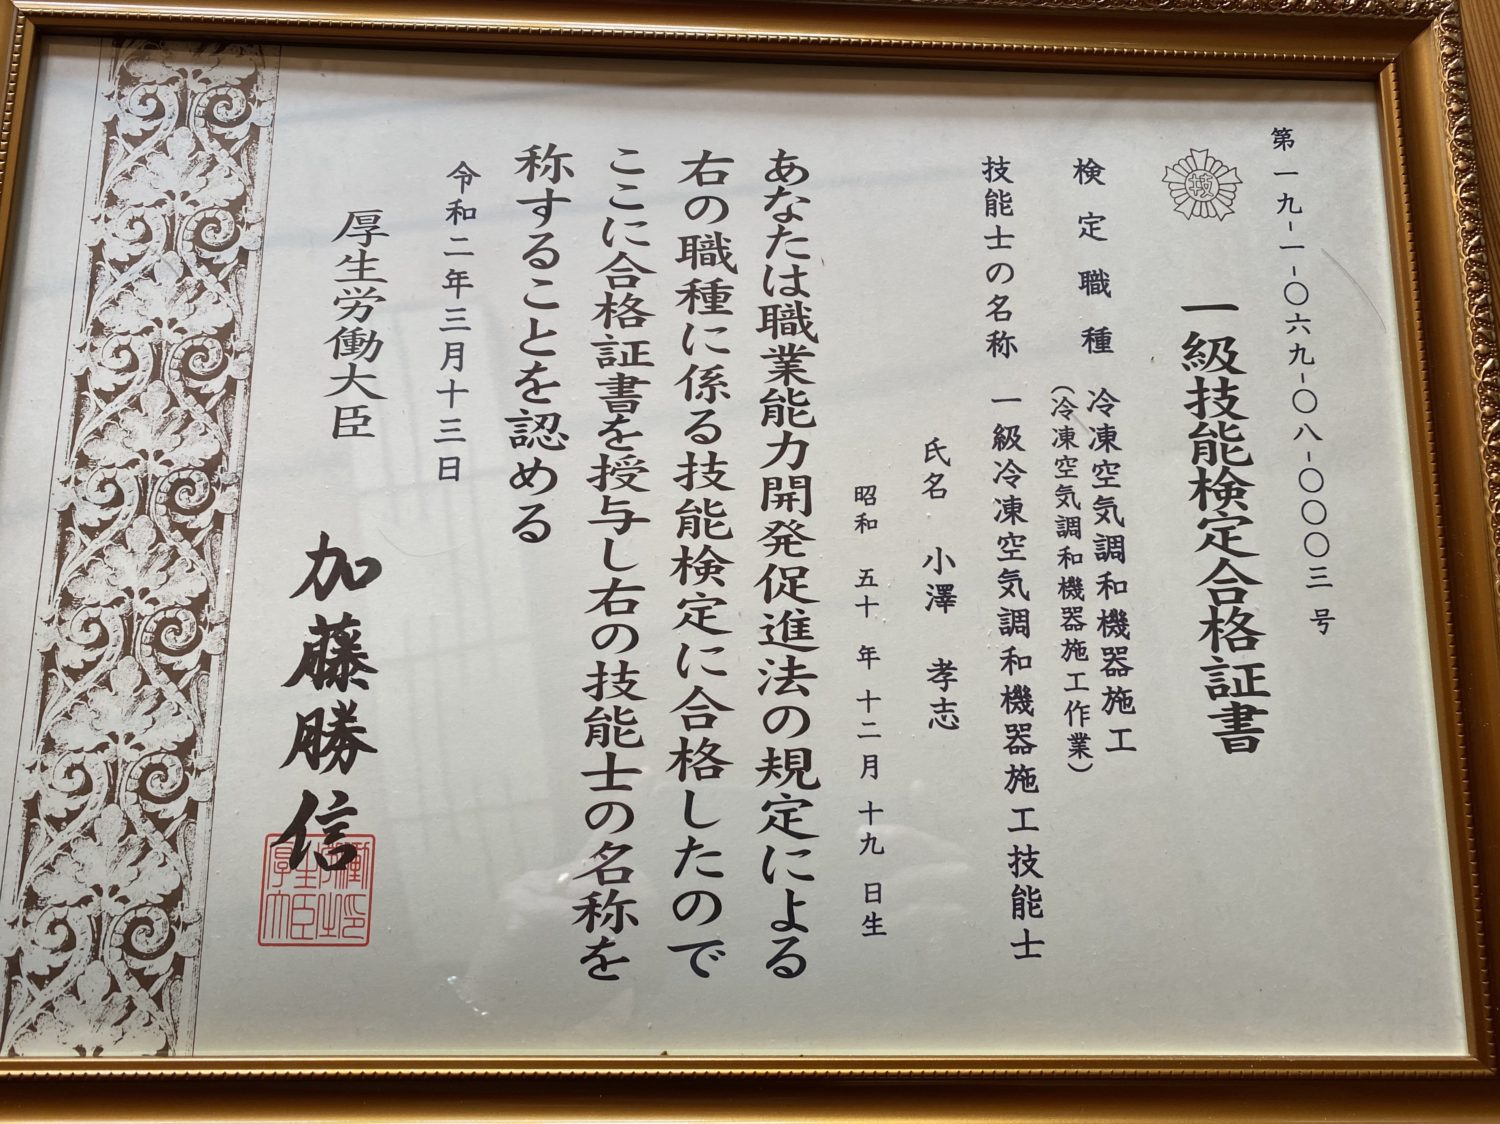 第一九-一-〇六九-〇八-〇〇〇三号
技
一級技能検定合格証書
検定職種 冷凍空気調和機器施工
(冷凍空気調和機器施工作業)
技能士の名称 一級冷凍空気調和機器施工技能士
氏名 小澤 孝志
昭和 五十 年 十二月 十九 日生
あなたは職業能力開発促進法の規定による
右の職種に係る技能検定に合格したので
ここに合格証書を授与し右の技能士の名称を
称することを認める
令和二年三月十三日
厚生労働大臣 加藤勝信